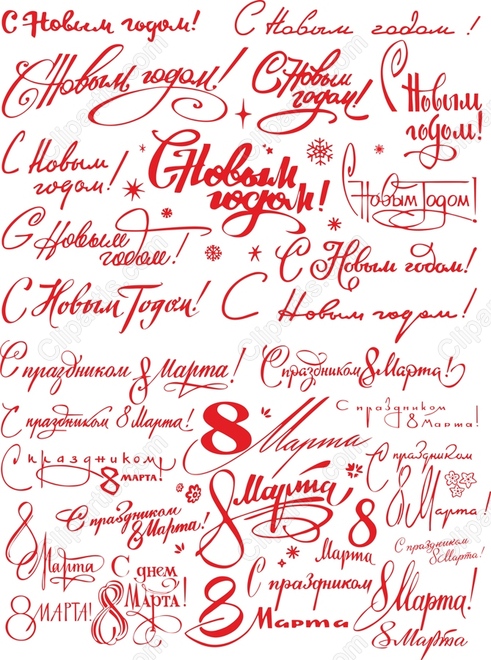 С Новым годом!
С Новым годом !
С Новым годом!
С Новым
годом!
С Новым
годом!
С Новым
годом!
С Новым
годом!
С Новым Годом!
С Новым
годом!
С Новым годом!
С Новым Годом!
С Новым годом!
С праздником 8 Марта!
С праздником 8 Марта!
С праздником 8 Марта!
8 Марта
С праздником
8 Марта!
С праздником
8 МАРТА!
8 Марта
С праздником
8 Марта!
С праздником
8 Марта!
8
Марта
С праздником
8 Марта!
8 Марта
С днем
8 Марта!
С праздником
8 Марта
8 Марта!
8 МАРТА!
8 Марта